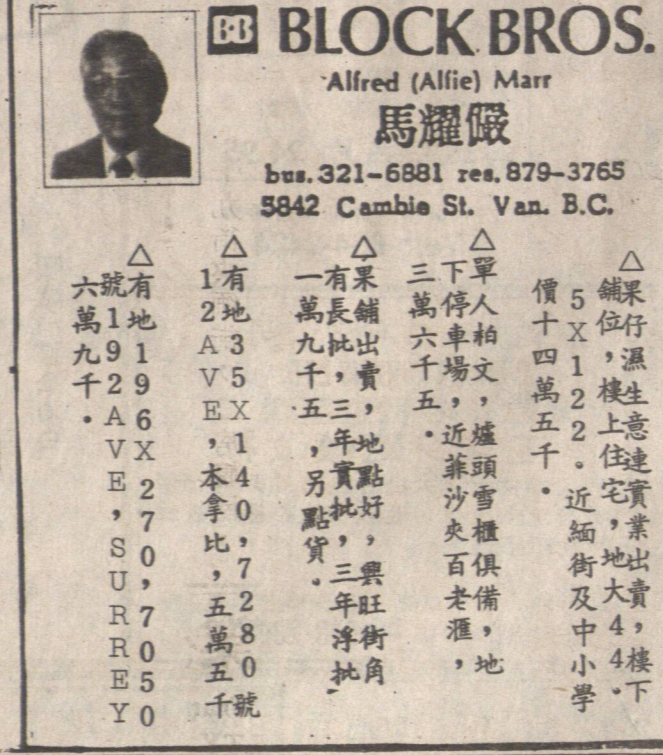 B·B BLOCK BROS.
Alfred (Alfie) Marr
馬耀儼
bus. 321-6881 res. 879-3765
5842 Cambie St. Van. B.C.
△果仔濕生意連實業出賣，樓下
舖位，樓上住宅，地大44．
5X122。近緬街及中小學
價十四萬五千．
△單人柏文，爐頭雪櫃俱備，地
下停車場，近菲沙夾百老滙，
三萬六千五．
△果舖出賣，地點好，興旺街角
有長批，三年實批，三年浮批
一萬九千五，另點貨。
△有地35X140，7280號
12AVE，本拿比，五萬五千
△有地196X270，7050
號192AVE，SURREY
六萬九千．